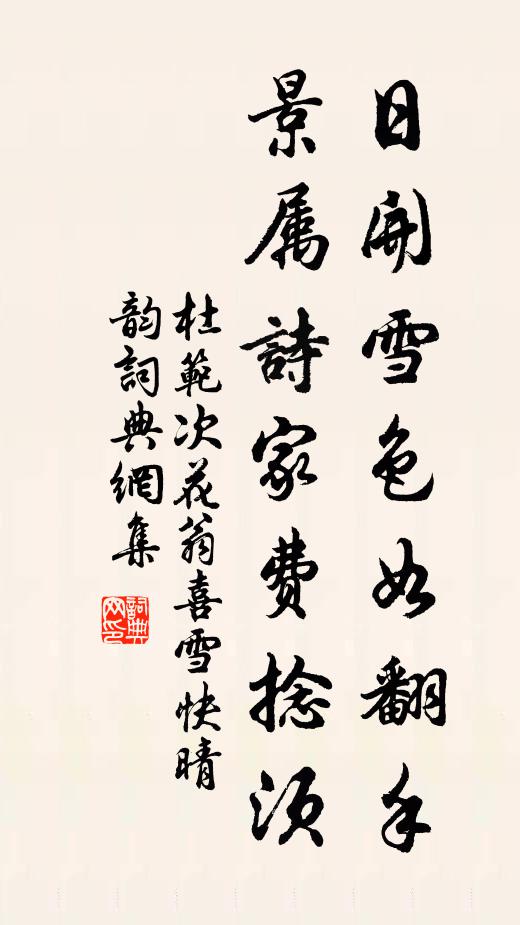 日開雪色如翻手
景属詩家費捻須
杜範次花翁喜雪快晴
韵詞典網集
詞典网印